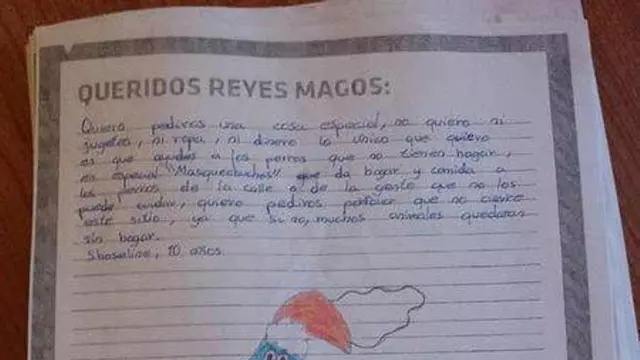 QUERIDOS REYES MAGOS:
Quiero pediros una cosa especial, no quiero ni
jugetes, ni ropa, ni dinero lo único que quiero
es que ayudes a los perros que no tienen hogar,
en especial "Masquechuchos" que da hogar y comida a
los perros de la calle o de la gente que no los
puede cuidar, quiero pediros porfavor que no cierre
este sitio, ya que si no, muchos animales quedaran
sin hogar.
10 años